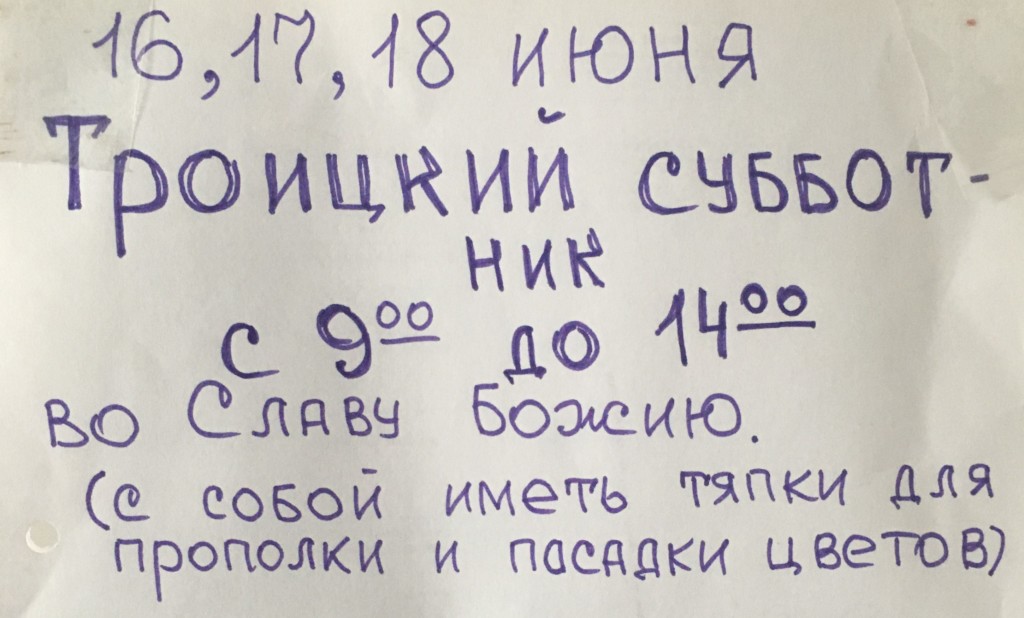 16, 17, 18 июня
Троицкий суббот-
ник
с 9⁰⁰ до 14⁰⁰
во Славу Божию.
(с собой иметь тяпки для
прополки и посадки цветов)